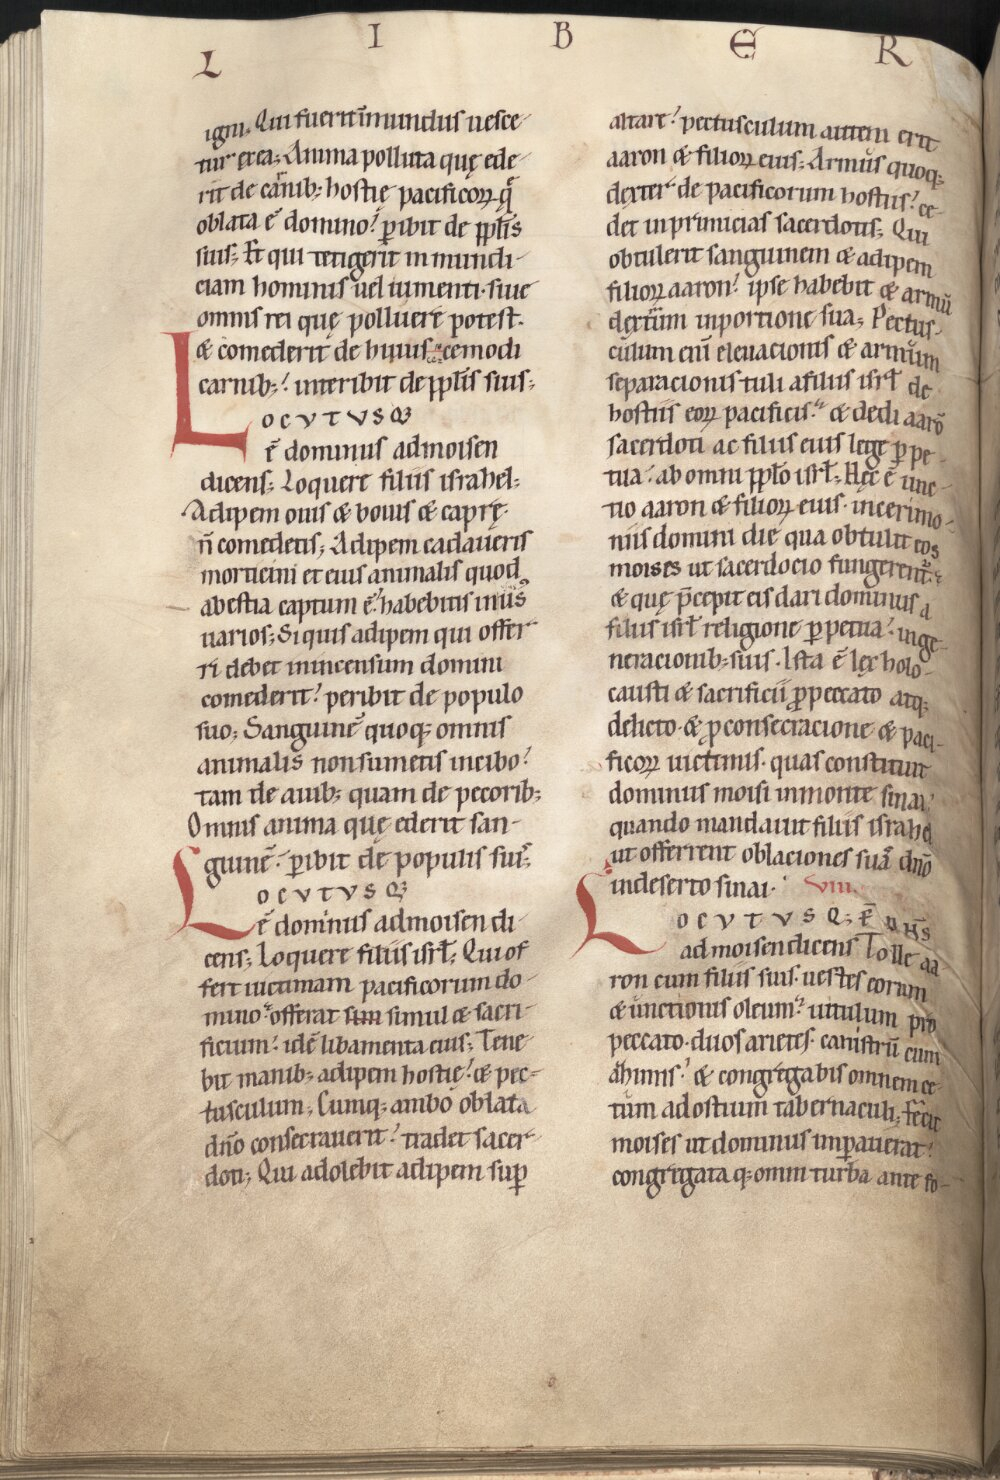 L I B E R
igni. Qui fuerit īmundus uesce-
tur ex ea; Anima polluta quę ede-
rit de carnib; hostię pacificoꝝ q̄
oblata ē domino? ꝑibit de ppl̄is
suis; Et qui tetigerit inmundi-
ciam hominis uel iumenti· siue
omnis rei quę polluere potest·
& comederit de huiuscemodi
carnib;? interibit de ppl̄is suis;
LOCVTVSQ;
ē dominus admoisen
dicens; Loquere filiis israhel;
Adipem ouis & bouis & caprę
n̄ comedetis; Adipem cadaueris
morticini et eius animalis quod
abestia captum ē? habebitis inus̄
uarios; Siquis adipem qui offer-
ri debet inincensum domini
comederit? peribit de populo
suo; Sanguinē quoq; omnis
animalis non sumetis incibo?
tam de auib; quam de pecorib;
Omnis anima quę ederit san-
guinē? ꝑibit de populis suis;
LOCVTVSQ;
ē dominus admoisen di-
cens; Loquere filiis isrł; Qui of
fert uictimam pacificorum do-
mino? offerat sim simul & sacri-
ficium? idē libamenta eius; Tene-
bit manib; adipem hostię? & pec-
tusculum; Cumq; ambo oblata
dn̄o consecrauerit? tradet sacer-
doti; Qui adolebit adipem suꝑ
altare? pectusculum autem erit
aaron & filioꝝ eius; Armus quoq;
dexter de pacificorum hostiis? ce-
det inprimicias sacerdotis; Qui
obtulerit sanguinem & adipem
filioꝝ aaron? ipse habebit & armū
dextrum inportione sua; Pectus-
culum enī eleuacionis & armum
separacionis tuli afiliis isrł de
hostiis eoꝝ pacificis? & dedi aarō
sacerdoti ac filiis eius lege ꝑpe-
tua? ab omni ppło isrł; Hęc ē unc-
tio aaron & filioꝝ eius· incerimo-
niis domini die qua obtulit eos
moises ut sacerdocio fungerent̄
& quę p̄cepit eis dari dominus a
filiis isrł religione ꝑpetua? inge-
neracionib; suis· Ista ē lex holo-
causti & sacrificii ꝓpeccato atq;
delicto· & ꝓconsecracione & paci-
ficoꝝ uictimis· quas constituit
dominus moisi inmonte sinai?
quando mandauit filiis israhel
ut offerrent oblaciones suas dn̄o
indeserto sinai· VIII.
LOCVTVSQ; Ē DN̄S
ad moisen dicens Tolle aa-
ron cum filiis suis· uestes eorum
& unctionis oleum? uitulum pro
peccato· duos arietes· canistrū cum
azimis? & congregabis omnem ce-
tum ad ostium tabernaculi; Fecit
moises ut dominus imꝑauerat?
congregata q; omni turba ante fo-